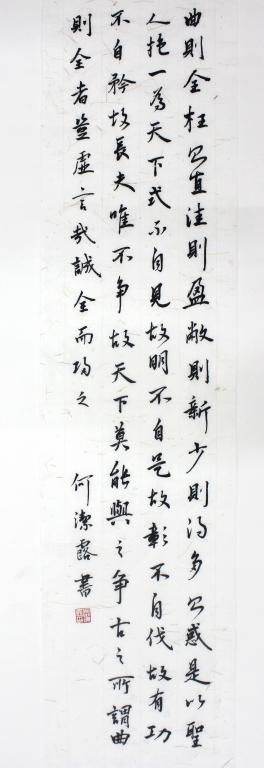 曲則全枉則直洼則盈敝則新少則得多則惑是以聖
人抱一為天下式不自見故明不自是故彰不自伐故有功
不自矜故長夫唯不争故天下莫能與之争古之所謂曲
則全者豈虛言哉誠全而歸之
何潔露書